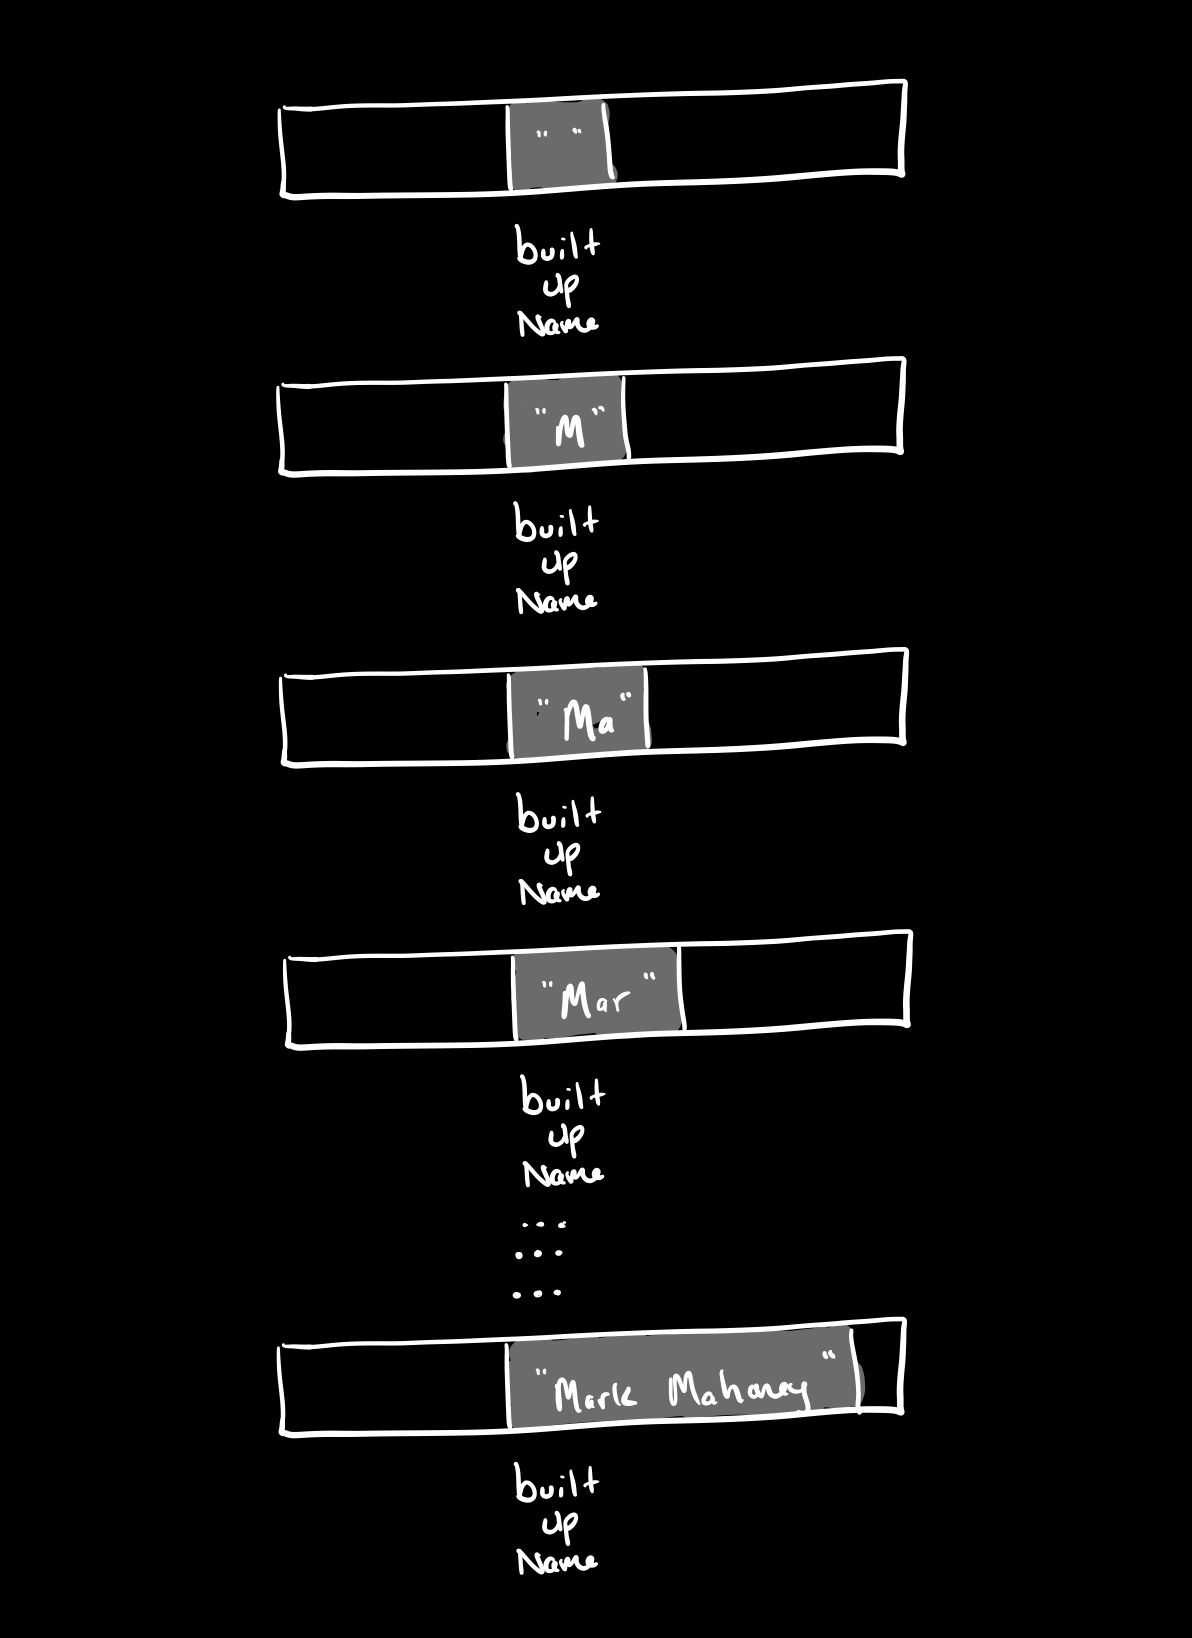 " "
built
up
Name
"M"
built
up
Name
"Ma"
built
up
Name
"Mar"
built
up
Name
...
...
...
"Mark Mahoney"
built
up
Name